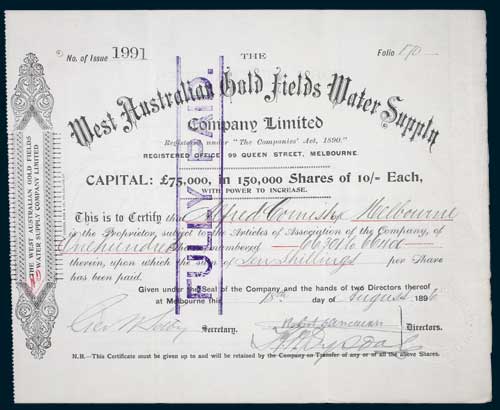 No. of Issue 1991
THE
Folio
West Australian Gold Fields Water Supply
Company Limited
Registered under "The Companies' Act, 1890."
REGISTERED OFFICE 99 QUEEN STREET, MELBOURNE.
CAPITAL: £75,000, in 150,000 Shares of 10/- Each,
WITH POWER TO INCREASE.
This is to Certify that Alfred Melbourne
is the Proprietor, subject to the Articles of Association of the Company, of
One hundred Shares numbered to
therein, upon which the sum of Ten Shillings per Share
has been paid.
Given under the Seal of the Company and the hands of two Directors thereof
at Melbourne this 18th day of August 1896
Secretary.
Directors.
N.B.—This Certificate must be given up to and will be retained by the Company on Transfer of any or of all the above Shares.
FULLY PAID.
THE WEST AUSTRALIAN GOLD FIELDS
WATER SUPPLY COMPANY LIMITED